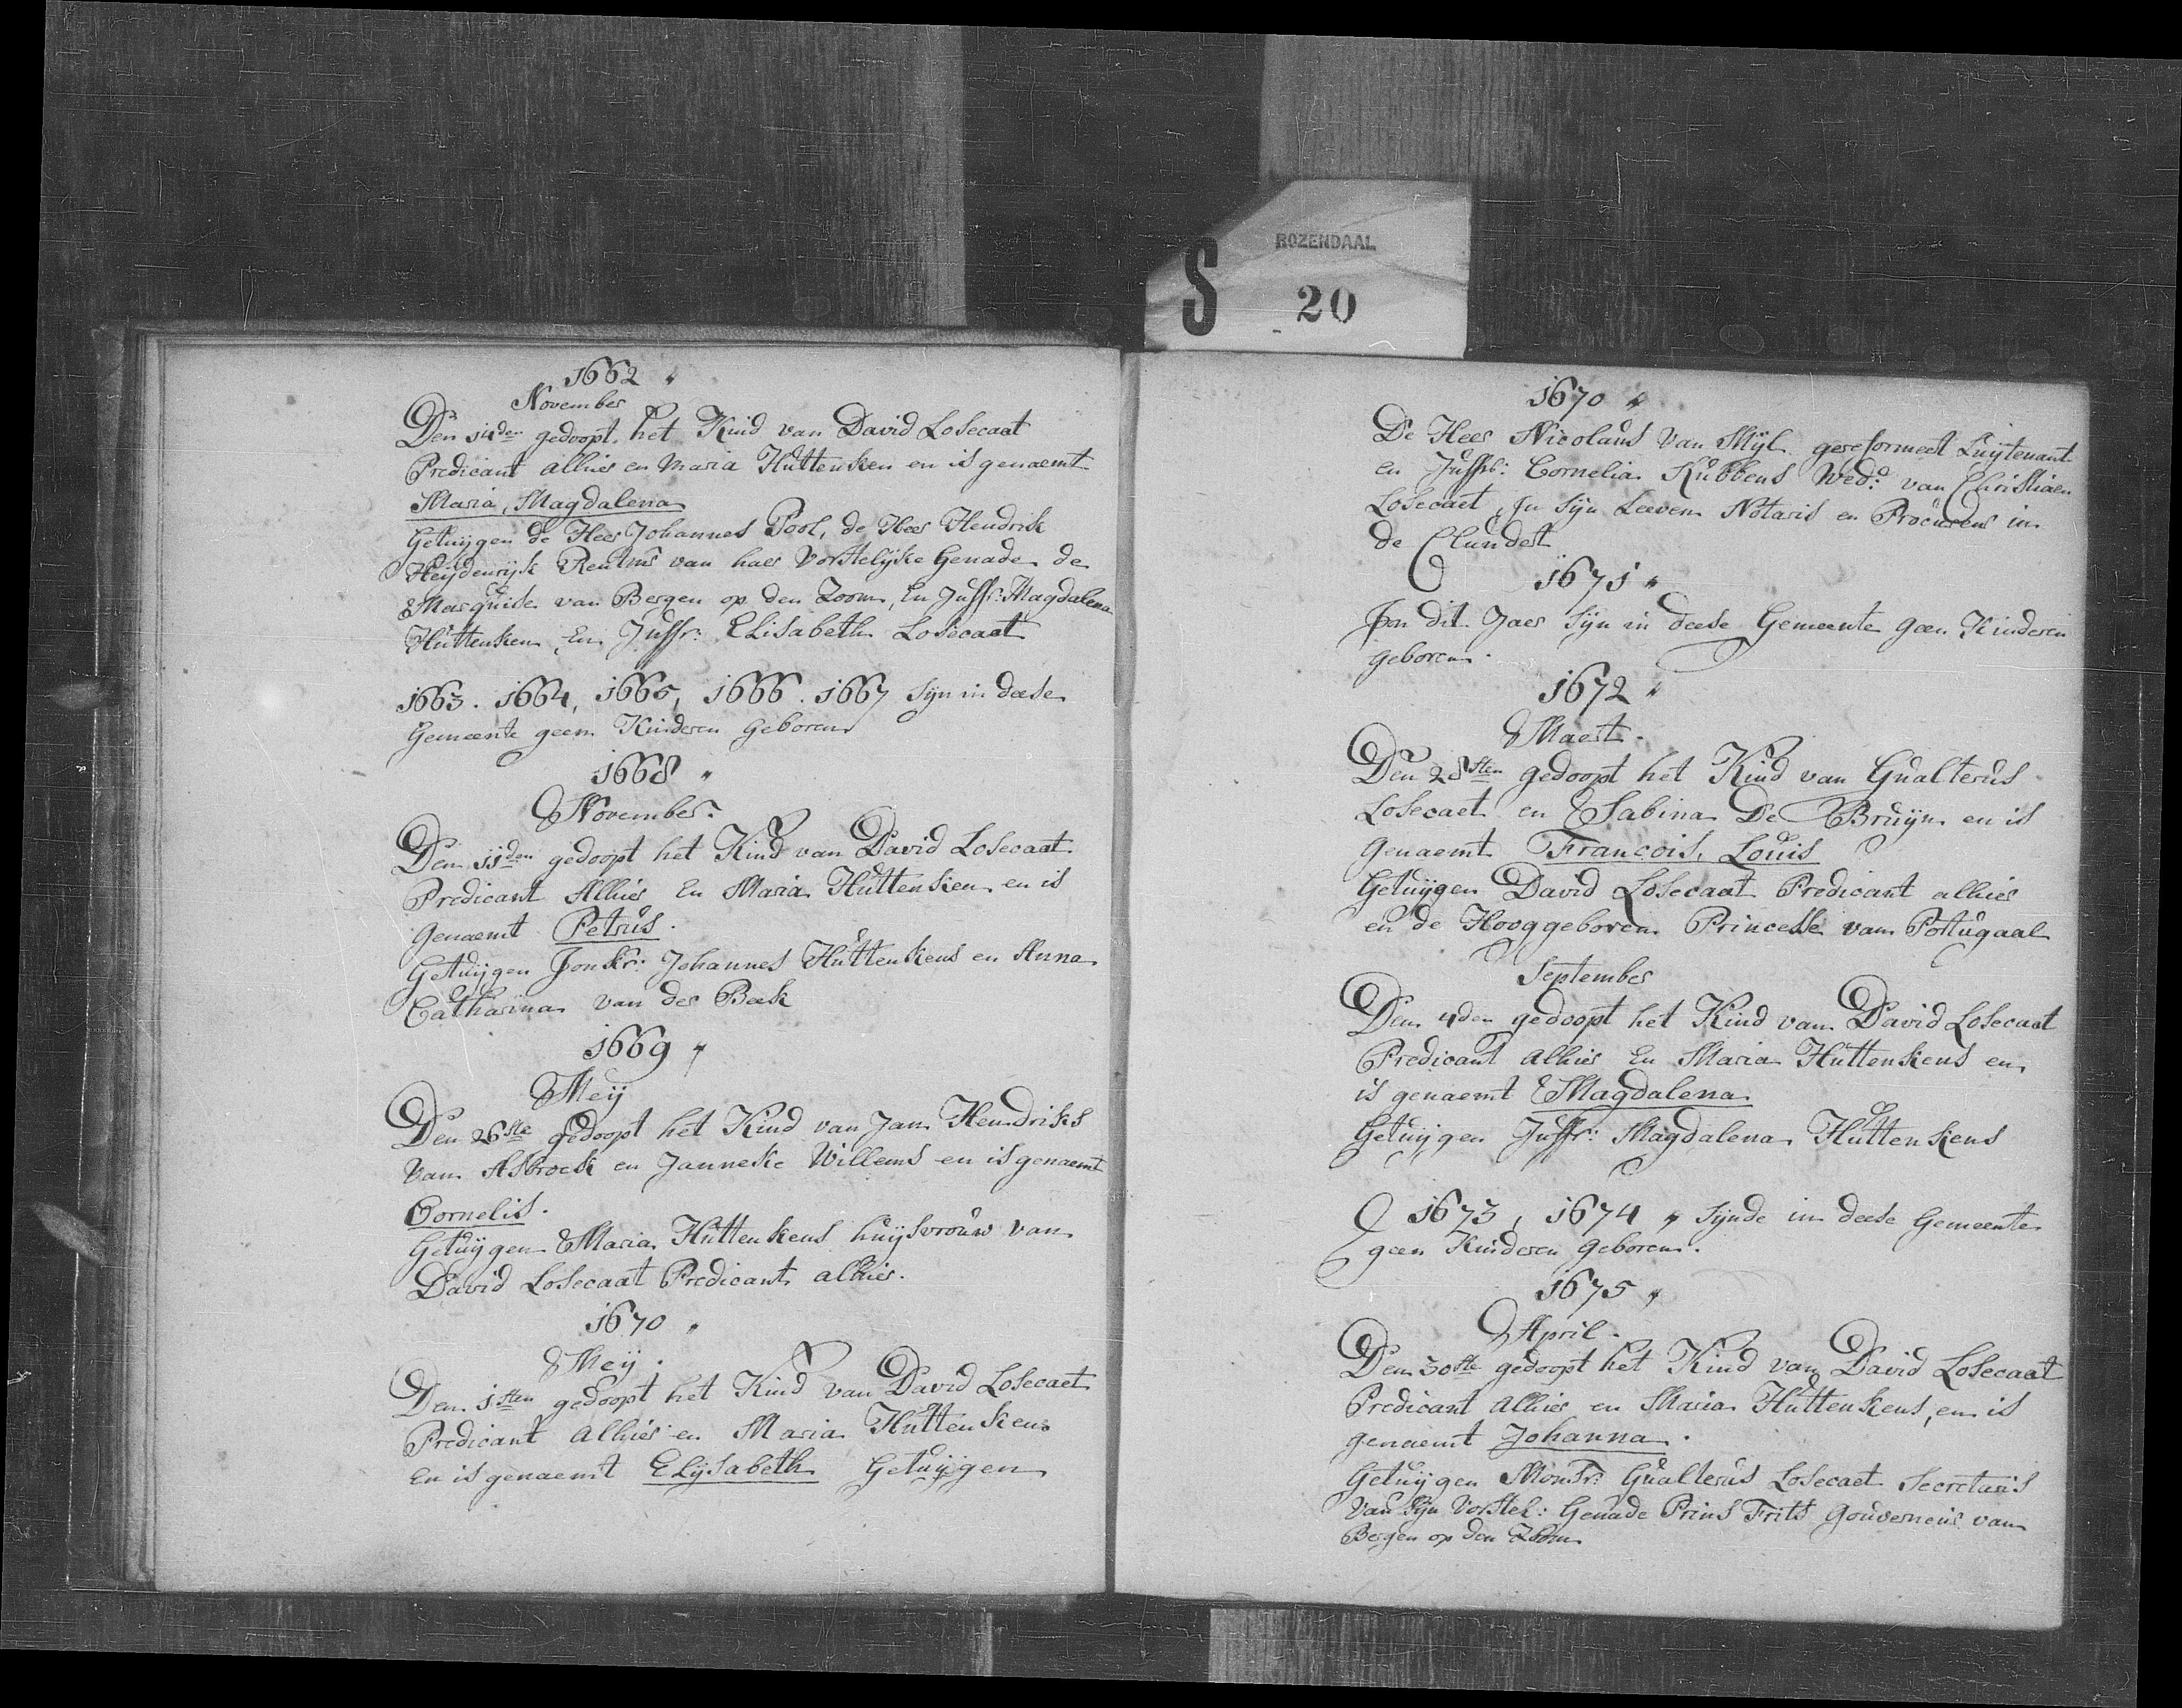 ROZENDAAL
S 20
1662 "
November
Den 14den gedoopt het Kind van David Losecaat
Predicant alhier en Maria Huttenken en is genaemt
Maria, Magdalena
Getuijgen de Heer Johannes Pool, de Heer Hendrik
Heijdenrijk Rentmr van haer Vorstelijke Genade de
Marquise van Bergen op den Zoom, En Juffr: Magdalena
Huttenken En Juffr: Elisabeth Losecaat
1663. 1664, 1665, 1666. 1667 sijn in deese
Gemeente geen Kinderen geboren
1668 "
November.
Den 11den gedoopt het Kind van David Losecaat
Predicant Alhier En Maria Huttenken en is
genaemt Petrus.
Getuijgen Jonkr: Johannes Huttenkens en Anna
Catharina van der Beek
1669 "
Meij
Den 26ste gedoopt het Kind van Jan Hendriks
van Asbroek en Janneke Willems en is genaemt
Cornelis.
Getuijgen Maria Huttenkens huijsvrouw van
David Losecaat Predicant alhier.
1670 "
Meij.
Den 1sten gedoopt het Kind van David Losecaet
Predicant Alhier en Maria Huttenkens
En is genaemt Elijsabeth Getuijgen
1670 "
De Heer Nicolaus van Mijl gereformeet Luijtenant
en Juffr: Cornelia Kubbens Wed: van Christiaen
Losecaet, In sijn Leeven Notaris en Procureur in
de Clundert
1671 "
In dit Jaer sijn in deese Gemeente geen Kinderen
geboren.
1672 "
Maert.
Den 28sten gedoopt het Kind van Gualterus
Losecaet en Sabina De Bruijn en is
Genaemt Francois, Louis
Getuijgen David Losecaat Predicant alhier
en de Hooggeboren Princesse van Portugaal
September
Den 4den gedoopt het Kind van David Losecaat
Predicant Alhier En Maria Huttenkens en
is genaemt Magdalena
Getuijgen Juffr: Magdalena Huttenkens
1673, 1674 " sijnde in deese Gemeente
geen Kinderen geboren.
1675 "
April.
Den 30ste gedoopt het Kind van David Losecaat
Predicant Alhier en Maria Huttenkens, en is
genaemt Johanna.
Getuijgen Monsr: Gualterus Losecaet Secretaris
van sijn Vorstel: Genade Prins Frits Gouverneur van
Bergen op den Zoom